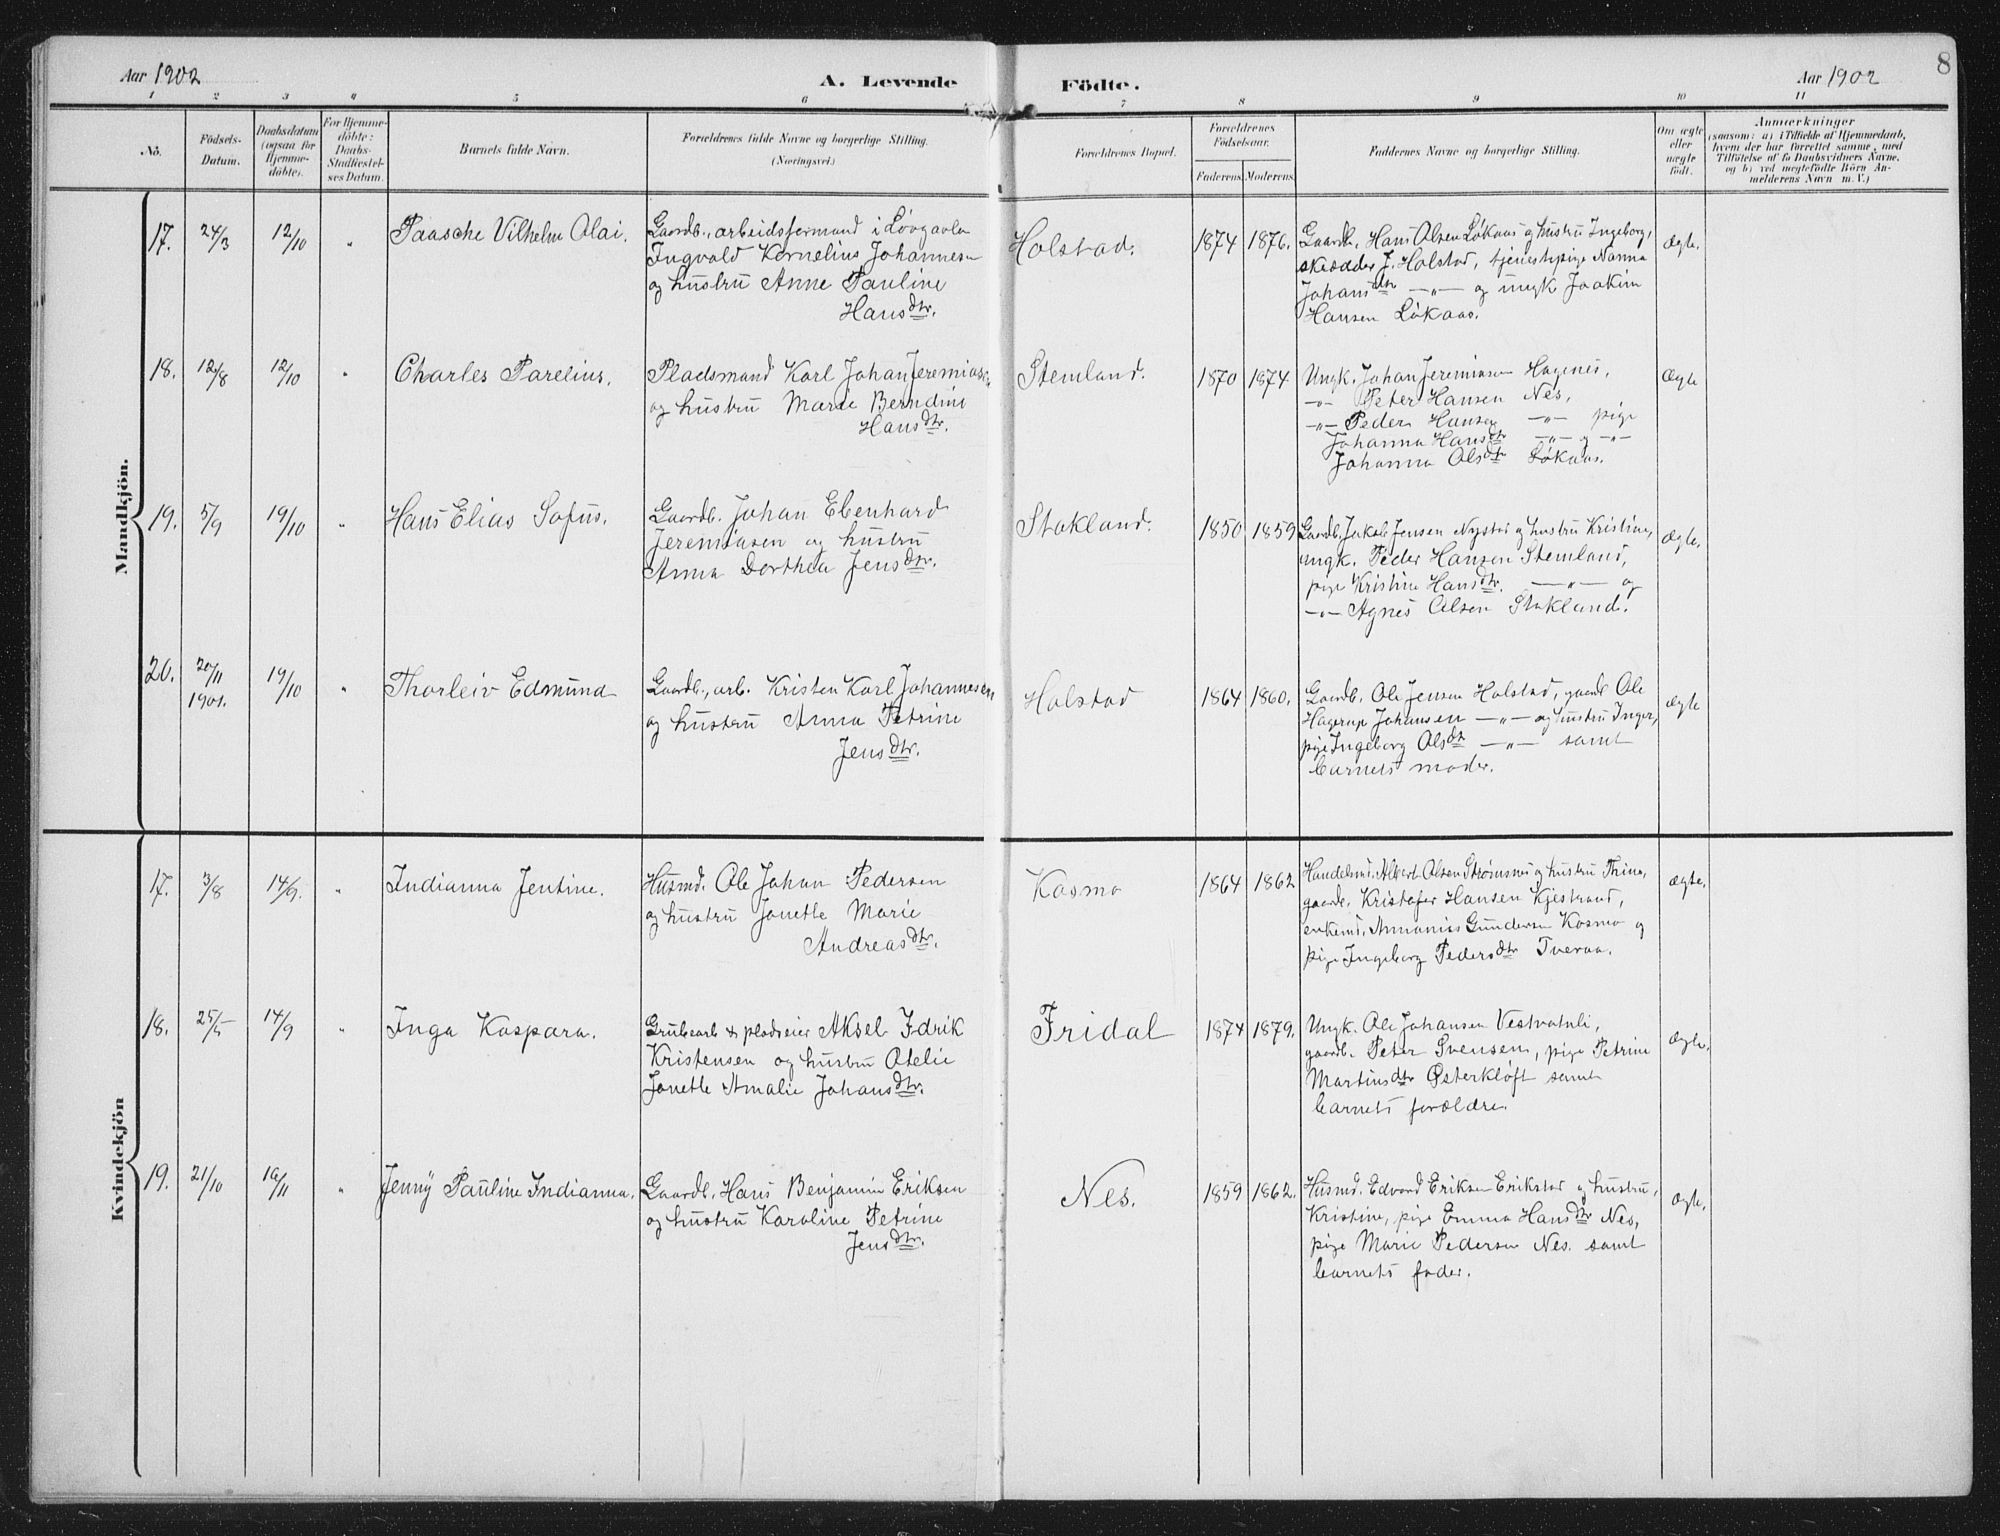 Aar 1902
A. Levende
Födte.
Aar 1902
8
1 2 3 4 5 6 7 8 9 10 11
No.
Födsels-
Datum.
Daabsdatum
(ogsaa for
Hjemme-
döbte).
For Hjemme-
döbte:
Daabs-
Stadfæstel-
ses Datum.
Barnets fulde Navn.
Forældrenes fulde Navne og borgerlige Stilling.
(Næringsvei.)
Forældrenes Bopæl.
Forældrenes
Födselsaar.
Faderens.
Moderens.
Faddernes Navne og borgerlige Stilling.
Om ægte
eller
uægte
födt.
Anmærkninger
(saasom: a) i Tilfælde af Hjemmedaab,
hvem der har forrettet samme, med
Tilföielse af to Daabsvidners Navne,
og b) ved uegtefödte Börn An-
melderens Navn m. V.)
Mandkjön.
17. 24/3 12/10 " Paasche Vilhelm Olai.
Gaardb., arbeidsformand i Løvgavlen
Ingvald Kornelius Johannesen
og hustru Anne Pauline
Hansdtr.
Holstad. 1874 1876.
Gaardb. Hans Olsen Løkaas og hustru Ingeborg,
skrædder J. Holstad, tjenestepige Nanna
Johansdtr —"— og ungk Joakim
Hansen Løkaas.
Ægte.
18. 12/8 12/10 " Charles Parelius.
Pladsmand Karl Johan Jeremiasen
og hustru Marie Berndine
Hansdtr.
Stemland. 1870 1874
Ungk. Johan Jeremiasen Hagenes,
—"— Peter Hansen Nes,
—"— Peder Hansen —"— pige
Johanna Hansdtr —"— og —"—
Johanna Olsdtr Løkaas.
Ægte
19. 5/9 19/10 " Hans Elias Sofus.
Gaardb. Johan Ebenhard
Jeremiasen og hustru
Anna Dorthea Jensdtr.
Stokland. 1850 1859
Gaardb. Jakob Jensen Nystad og hustru Kristine,
ungk. Peder Hansen Stemland,
pige Kristine Hansdtr. —"— og
—"— Agnes Olsen Stokland.
Ægte.
20. 20/11 1901. 19/10 " Thorleiv Edmund
Gaardb., arb. Kristen Karl Johannesen
og hustru Anna Petrine
Jensdtr.
Holstad 1864 1860.
Gaardb. Ole Jensen Holstad, gaardb Ole
Hagerup Johansen —"— og hustru Inger,
pige Ingeborg Olsdtr —"— samt
barnets moder.
Ægte
Kvindekjön
17. 3/8 14/9. " Indianna Jentine.
Husmd. Ole Johan Pedersen
og hustru Jonette Marie
Andreasdtr.
Kosmo 1864 1862
Handelsmd. Albert Olsen Strøsnes og hustru Thina,
gaardb. Kristofer Hansen Kjestrand,
enkemd. Annanias Gundersen Kosmo og
pige Ingeborg Pedersdtr Tveraa.
Ægte.
18. 25/5 14/9 " Inga Kaspara.
Grubearb & pladseier Aksel Idrik
Kristensen og hustru Otelie
Jonette Amalie Johansdtr.
Fridal 1874 1879.
Ungk. Ole Johansen Vestvatnli,
gaardb. Peter Svensen, pige Petrine
Martinsdtr Østerkløft samt
barnets forældre.
Ægte.
19. 21/10 16/11 " Jenny Pauline Indianna.
Gaardb. Hans Benjamin Eriksen
og hustru Karoline Petrine
Jensdtr.
Nes. 1859 1862.
Husmd. Edvard Eriksen Erikstad og hustru,
Kristine, pige Emma Hansdtr Nes,
pige Marie Pedersen Nes. samt
barnets fader.
Ægte.